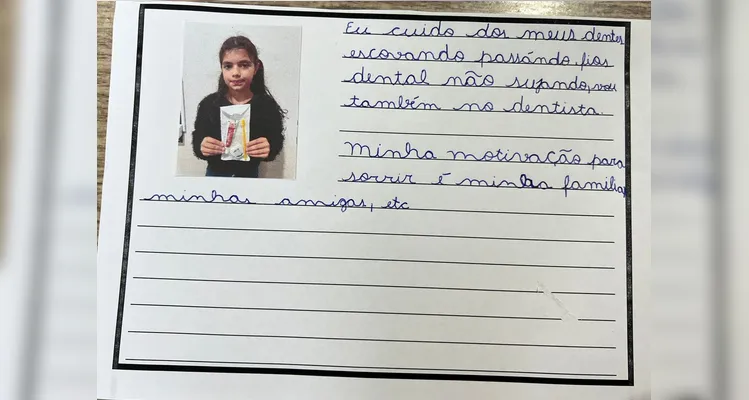 Eu cuido dos meus dentes
escovando passándo fios
dental não sujando, vou
também no dentista.
Minha motivação para
sorrir é minha familia,
minhas amigas, etc